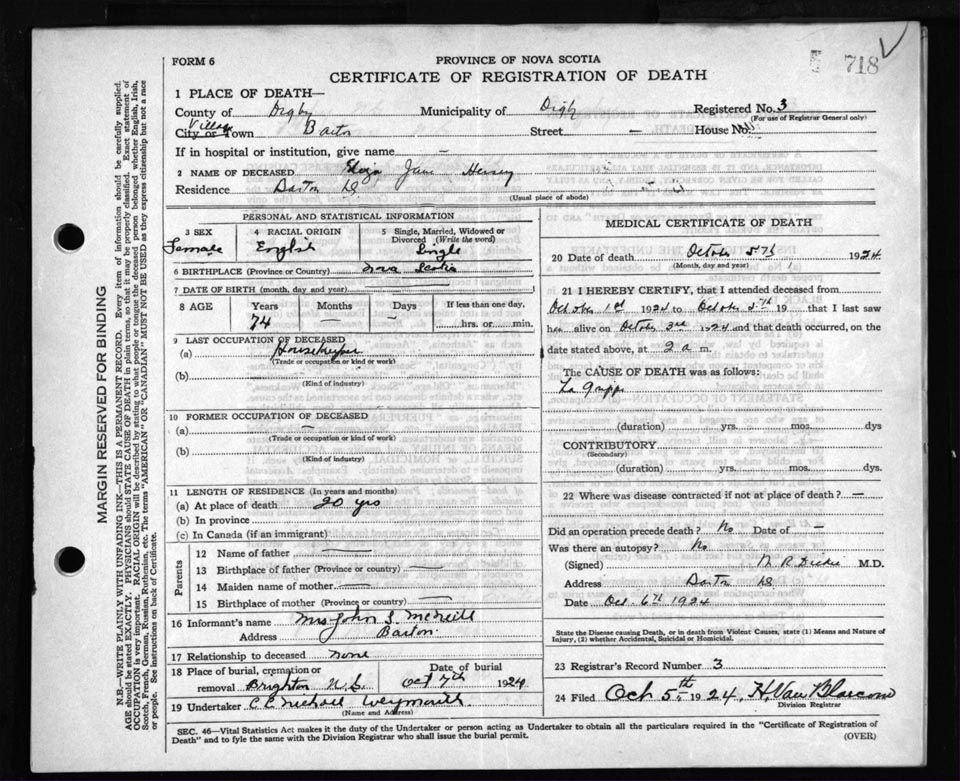 FORM 6
PROVINCE OF NOVA SCOTIA
718
CERTIFICATE OF REGISTRATION OF DEATH
1 PLACE OF DEATH—
County of Digby Municipality of Digby Registered No. 3
(For use of Registrar General only)
Village
City or Town Barton Street — House No.
If in hospital or institution, give name —
2 NAME OF DECEASED Eliza Jane Hersey
Residence Barton
(Usual place of abode)
PERSONAL AND STATISTICAL INFORMATION
3 SEX
Female
4 RACIAL ORIGIN
English
5 Single, Married, Widowed or Divorced (Write the word)
Single
6 BIRTHPLACE (Province or Country) Nova Scotia
7 DATE OF BIRTH (month, day and year)
8 AGE Years Months Days If less than one day,
74 — — hrs. or min.
9 LAST OCCUPATION OF DECEASED
(a) Housekeeper
(Trade or occupation or kind or work)
(b)
(Kind of industry)
10 FORMER OCCUPATION OF DECEASED
(a) —
(Trade or occupation or kind of work)
(b)
(Kind of industry)
11 LENGTH OF RESIDENCE (In years and months)
(a) At place of death 20 yrs
(b) In province
(c) In Canada (if an immigrant)
Parents
12 Name of father —
13 Birthplace of father (Province or country) —
14 Maiden name of mother —
15 Birthplace of mother (Province or country) —
16 Informant's name Mrs John S. McNeill
Address Barton
17 Relationship to deceased None
18 Place of burial, cremation or Date of burial
removal Brighton N.S. Oct 7th 1924
19 Undertaker C C Nichols Weymouth
(Name and Address)
MEDICAL CERTIFICATE OF DEATH
20 Date of death October 5th 1924
(Month, day and year)
21 I HEREBY CERTIFY, that I attended deceased from
October 1st 1924 to October 5th 19 that I last saw
her alive on October 3rd 1924 and that death occurred, on the
date stated above, at 2 a m.
The CAUSE OF DEATH was as follows:
La Grippe
(duration) yrs. mos. dys
CONTRIBUTORY
(Secondary)
(duration) yrs. mos. dys.
22 Where was disease contracted if not at place of death? —
Did an operation precede death? No Date of —
Was there an autopsy? No
(Signed) M.D.
Address Barton
Date Oct 6th 1924
State the Disease causing Death, or in death from Violent Causes, state (1) Means and Nature of
Injury, (2) whether Accidental, Suicidal or Homicidal.
23 Registrar's Record Number 3
24 Filed Oct 5th 1924, H. Van Blarcom
Division Registrar
SEC. 46—Vital Statistics Act makes it the duty of the Undertaker or person acting as Undertaker to obtain all the particulars required in the "Certificate of Registration of
Death" and to fyle the same with the Division Registrar who shall issue the burial permit.
(OVER)
MARGIN RESERVED FOR BINDING
N.B.—WRITE PLAINLY WITH UNFADING INK—THIS IS A PERMANENT RECORD. Every item of information should be carefully supplied.
AGE should be stated EXACTLY. PHYSICIANS should STATE CAUSE OF DEATH in plain terms, so that it may be properly classified. Exact statement of
OCCUPATION is very important. RACIAL ORIGIN will be described by stating to what people or tongue the deceased person belonged whether English, Irish,
Scotch, French, German, Russian, Ruthenian, etc. The terms "AMERICAN" OR "CANADIAN" MUST NOT BE USED as they express citizenship but not a race
or people. See instructions on back of Certificate.